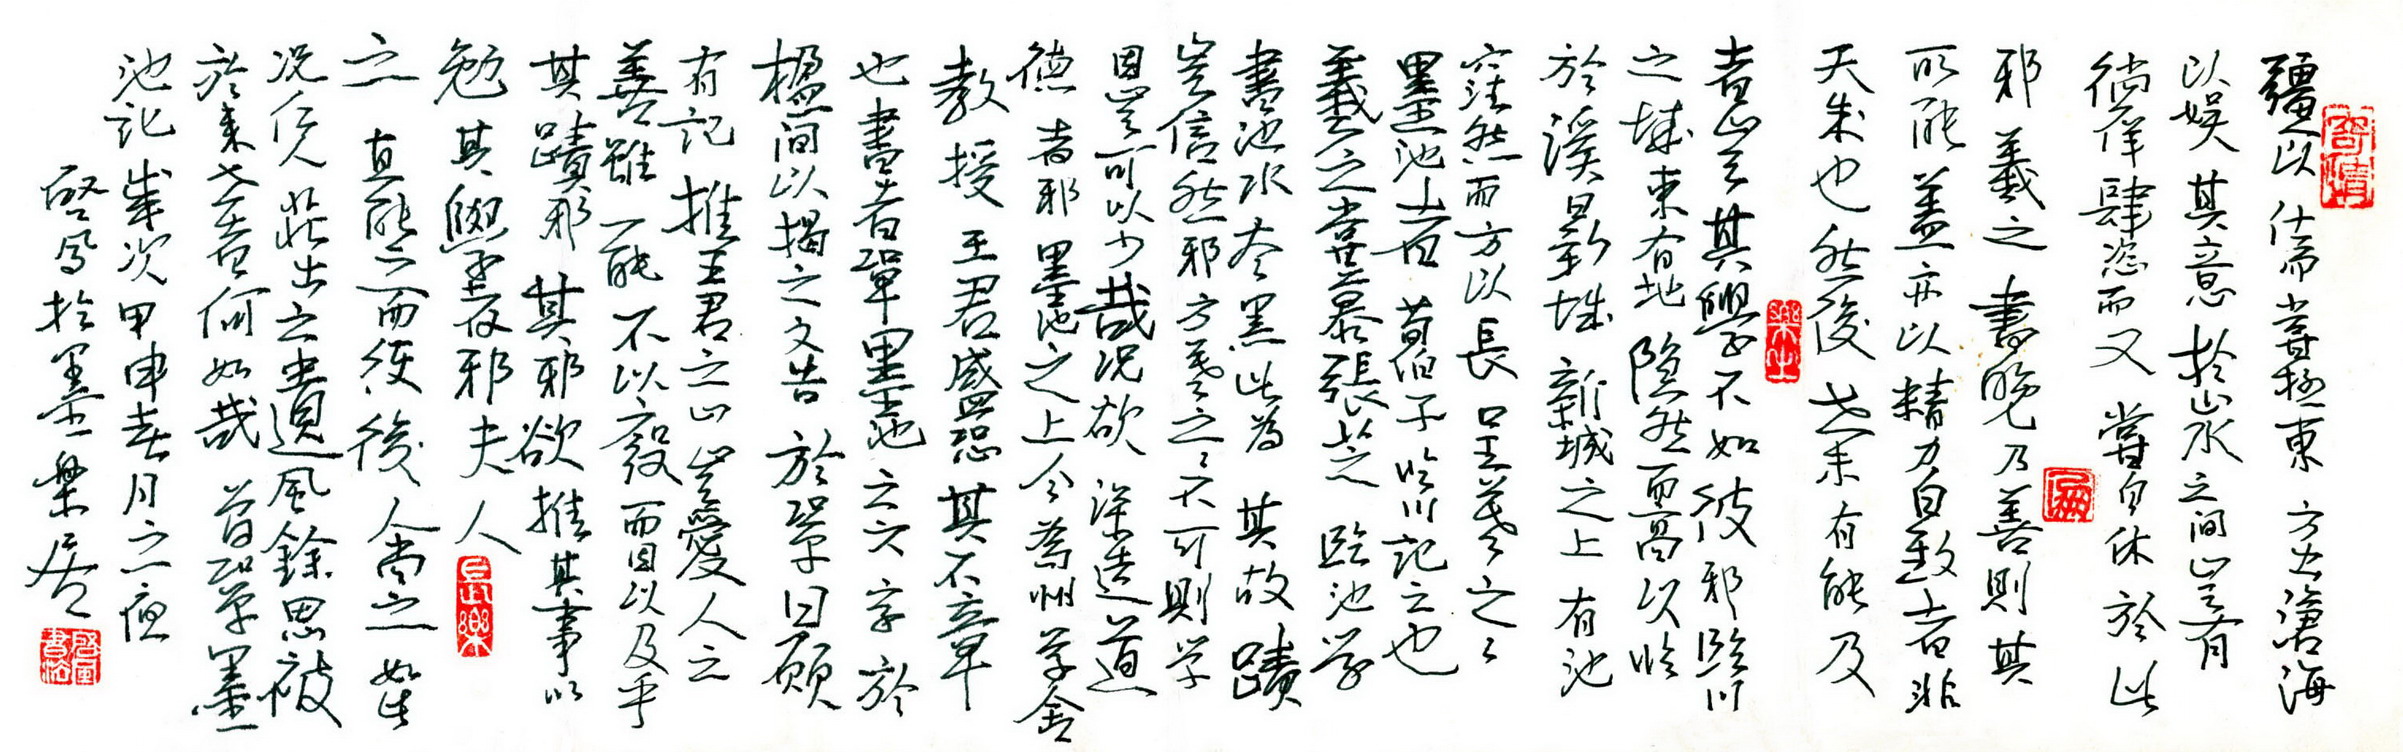 疆以仕而嘗極東方出滄海
以娛其意於山水之間豈有
徜徉肆恣而又嘗自休於此
邪羲之書晚乃善則其
所能蓋亦以精力自致者非
天成也然後世未有能及
者豈其學不如彼邪臨川
之城東有地隱然而高以臨
於溪曰新城新城之上有池
窪然而方以長曰王羲之之
墨池者荀伯子臨川記云也
羲之嘗慕張芝臨池學
書池水盡黑此為其故蹟
豈信然邪方羲之之不可則学
固豈可以少哉況欲深造道
德者邪墨池之上今為州学舍
教授王君盛恐其不章
也書晉右軍墨池之六字於
楹間以揭之又告於鞏曰願
有記推王君之心豈愛人之
善雖一能不以廢而因以及乎
其蹟邪其邪欲推其事以
勉其學者邪夫人
之有一能而使後人尚之如此
況仁人莊士之遺風餘思被
於来世者何如哉 曾鞏墨
池記 歲次甲申春月之夜
於墨樂居
寄情
長樂